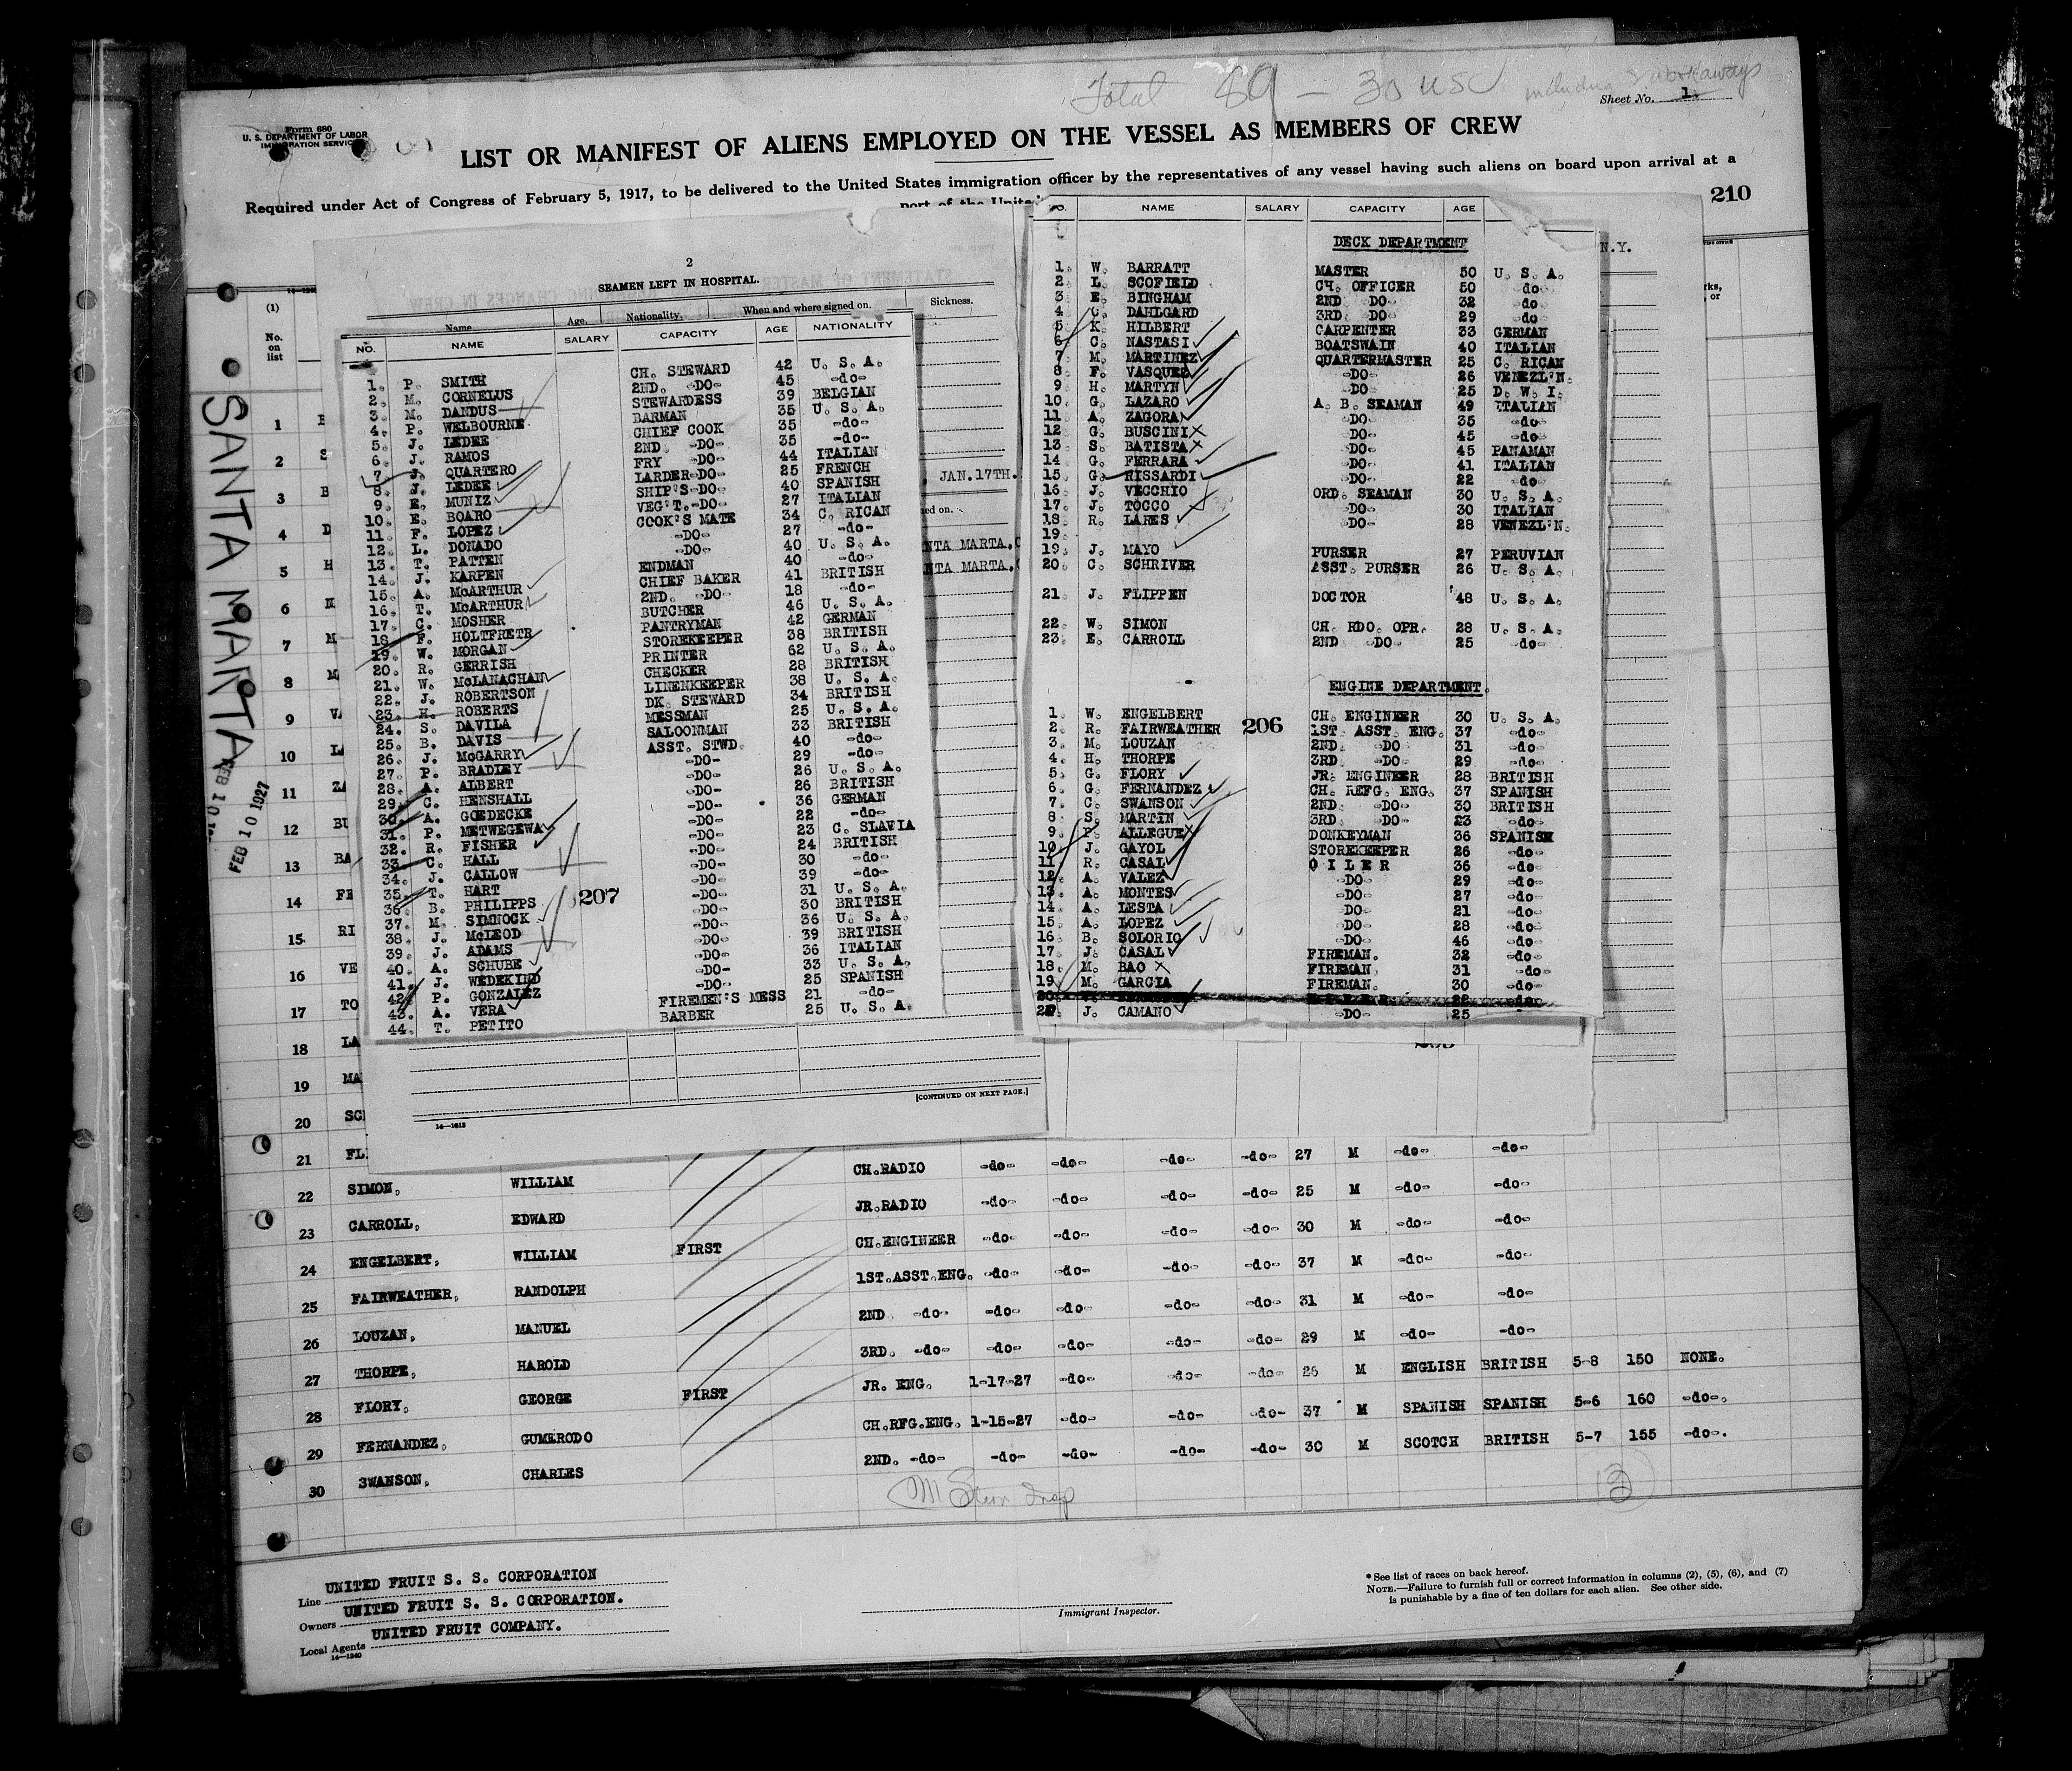 Total 89 - 30 USC including workaways
Sheet No. 1.
Form 680
U. S. DEPARTMENT OF LABOR
IMMIGRATION SERVICE
LIST OR MANIFEST OF ALIENS EMPLOYED ON THE VESSEL AS MEMBERS OF CREW
Required under Act of Congress of February 5, 1917, to be delivered to the United States immigration officer by the representatives of any vessel having such aliens on board upon arrival at a
port of the United
210
N.Y.
SANTA MARTA
FEB 10 1927
(1)
No. on list
2
SEAMEN LEFT IN HOSPITAL.
Name Age. Nationality. When and where signed on. Sickness.
JAN.17TH.
NO. NAME SALARY CAPACITY AGE NATIONALITY
1. P. SMITH CH. STEWARD 42 U. S. A.
2. M. CORNELUS 2ND. -DO- 45 -do-
3. M. DANDUS STEWARDESS 39 BELGIAN
4. P. WELBOURNE BARMAN 35 U. S. A.
5. J. LEDEE CHIEF COOK 35 -do-
6. J. RAMOS 2ND -DO- 35 -do-
7. J. QUARTERO FRY -DO- 44 ITALIAN
8. J. LEDEE LARDER-DO- 25 FRENCH
9. E. MUNIZ SHIP'S-DO- 40 SPANISH
10. E. BOARO VEG'T.-DO- 27 ITALIAN
11. F. LOPEZ COOK'S MATE 34 C. RICAN
12. L. DONADO -DO- 27 -do-
13. T. PATTEN -DO- 40 U. S. A.
14. J. KARPEN ENDMAN 40 -do-
15. A. McARTHUR CHIEF BAKER 41 BRITISH
16. T. McARTHUR 2ND. -DO- 18 -do-
17. C. MOSHER BUTCHER 46 U. S. A.
18. F. HOLTFRETR PANTRYMAN 42 GERMAN
19. W. MORGAN STOREKEEPER 38 BRITISH
20. R. GERRISH PRINTER 62 U. S. A.
21. W. McLANACHAN CHECKER 28 BRITISH
22. J. ROBERTSON LINENKEEPER 38 U. S. A.
23. H. ROBERTS DK. STEWARD 34 BRITISH
24. S. DAVILA MESSMAN 25 U. S. A.
25. B. DAVIS SALOONMAN 33 BRITISH
26. J. McGARRY ASST. STWD. 40 -do-
27. P. BRADLEY -DO- 29 -do-
28. A. ALBERT -DO- 26 U. S. A.
29. C. HENSHALL -DO- 26 BRITISH
30. A. GOEDECKE -DO- 36 GERMAN
31. P. METWEGEWA -DO- 22 -do-
32. R. FISHER -DO- 23 C. SLAVIA
33. C. HALL -DO- 24 BRITISH
34. J. CALLOW -DO- 30 -do-
35. T. HART -DO- 39 -do-
36. B. PHILIPPS -DO- 31 U. S. A.
37. M. SIMNOCK -DO- 30 BRITISH
38. J. McLEOD -DO- 36 U. S. A.
39. J. ADAMS -DO- 39 BRITISH
40. A. SCHUBE -DO- 36 ITALIAN
41. J. WEDEKIND -DO- 33 U. S. A.
42. P. GONZALEZ -DO- 25 SPANISH
43. A. VERA FIREMEN'S MESS 21 -do-
44. T. PETITO BARBER 25 U. S. A.
207
NTA MARTA.
NTA MARTA.
[CONTINUED ON NEXT PAGE.]
14—1613
NO. NAME SALARY CAPACITY AGE
DECK DEPARTMENT
1. W. BARRATT MASTER 50 U. S. A.
2. L. SCOFIELD CH. OFFICER 50 -do-
3. E. BINGHAM 2ND DO- 32 -do-
4. C. DAHLGARD 3RD DO- 29 -do-
5. K. HILBERT CARPENTER 33 GERMAN
6. C. NASTASI BOATSWAIN 40 ITALIAN
7. M. MARTINEZ QUARTERMASTER 25 C. RICAN
8. F. VASQUEZ -DO- 26 VENEZL'N.
9. H. MARTYN -DO- 25 D. W. I.
10. G. LAZARO A. B. SEAMAN 49 ITALIAN
11. A. ZAGORA -DO- 35 -do-
12. G. BUSCINI -DO- 45 -do-
13. S. BATISTA -DO- 45 PANAMAN
14. G. FERRARA -DO- 41 ITALIAN
15. G. RISSARDI -DO- 22 do
16. J. VECCHIO ORD. SEAMAN 30 U. S. A.
17. J. TOCCO -DO- 30 ITALIAN
18. R. LARES -DO- 28 VENEZL'N.
19.
19. J. MAYO PURSER 27 PERUVIAN
20. C. SCHRIVER ASST. PURSER 26 U. S. A.
21. J. FLIPPEN DOCTOR 48 U. S. A.
22. W. SIMON CH. RDO. OPR. 28 U. S. A.
23. E. CARROLL 2ND DO- 25 -do-
ENGINE DEPARTMENT.
206
1. W. ENGELBERT CH. ENGINEER 30 U. S. A.
2. R. FAIRWEATHER 1ST. ASST. ENG. 37 -do-
3. M. LOUZAN 2ND. -DO 31 -do-
4. H. THORPE 3RD -DO- 29 -do-
5. G. FLORY JR. ENGINEER 28 BRITISH
6. G. FERNANDEZ CH. REFG. ENG. 37 SPANISH
7. C. SWANSON 2ND. -DO- 30 BRITISH
8. S. MARTIN 3RD. -DO- 23 -do-
9. P. ALLEGUE DONKEYMAN 36 SPANISH
10. J. GAYOL STOREKEEPER 26 -do-
11. R. CASAL O I L E R 36 -do-
12. A. VALEZ -DO- 29 -do-
13. A. MONTES -DO- 27 -do-
14. A. LESTA -DO- 21 -do-
15. A. LOPEZ -DO- 28 -do-
16. B. SOLORIO -DO- 46 -do-
17. J. CASAL FIREMAN. 32 -do-
18. M. BAO FIREMAN. 31 -do-
19. M. GARCIA FIREMAN. 30 -do-
J. CAMANO -DO- 25
1 B
2 S
3 B
4 D
5 H
6
7 M
8 M
9 VA
10 LA
11 ZA
12 BU
13 BA
14 FE
15 RI
16 VE
17 TO
18 LA
19 MA
20 SC
21 FL CH.RADIO -do- -do- -do- -do- 27 M -do- -do-
22 SIMON, WILLIAM JR.RADIO -do- -do- -do- -do- 25 M -do- -do-
23 CARROLL, EDWARD CH.ENGINEER -do- -do- -do- -do- 30 M -do- -do-
24 ENGELBERT, WILLIAM FIRST 1ST.ASST.ENG. -do- -do- -do- -do- 37 M -do- -do-
25 FAIRWEATHER, RANDOLPH 2ND -do- -do- -do- -do- -do- 31 M -do- -do-
26 LOUZAN, MANUEL 3RD. -do- -do- -do- -do- -do- 29 M -do- -do-
27 THORPE, HAROLD JR. ENG. 1-17-27 -do- -do- -do- 26 M ENGLISH BRITISH 5-8 150 NONE.
28 FLORY, GEORGE FIRST CH.RFG.ENG. 1-15-27 -do- -do- -do- 37 M SPANISH SPANISH 5-6 160 -do-.
29 FERNANDEZ, GUMERODO 2ND. -do- -do- -do- -do- -do- 30 M SCOTCH BRITISH 5-7 155 -do-.
30 SWANSON, CHARLES
Line UNITED FRUIT S. S. CORPORATION
Owners UNITED FRUIT S. S. CORPORATION.
Local Agents UNITED FRUIT COMPANY.
14—1240
Immigrant Inspector.
* See list of races on back hereof.
NOTE.—Failure to furnish full or correct information in columns (2), (5), (6), and (7)
is punishable by a fine of ten dollars for each alien. See other side.